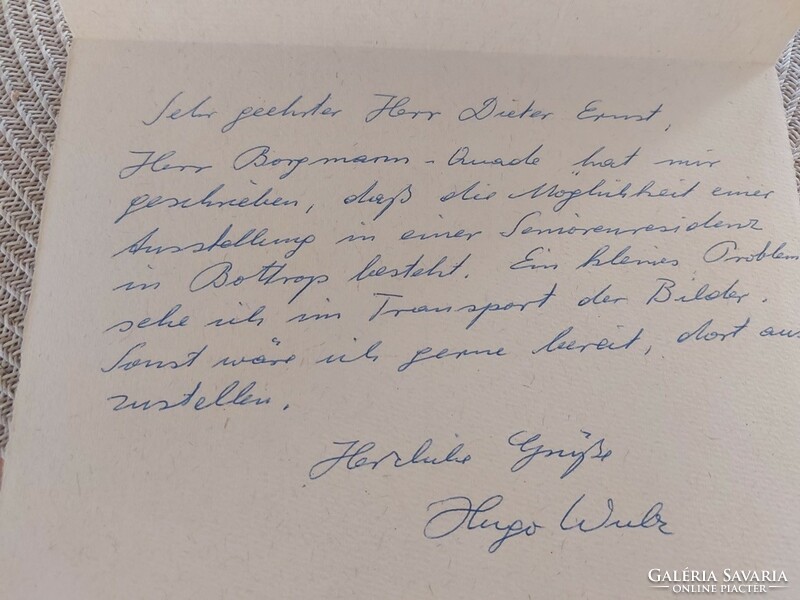 Sehr geehrter Herr Dieter Ernst,
Herr Borgmann-Quade hat mir
geschrieben, daß die Möglichkeit einer
Ausstellung in einer Seniorenresidenz
in Bottrop besteht. Ein kleines Problem
sehe ich im Transport der Bilder.
Sonst wäre ich gerne bereit, dort aus
zustellen.
Herzliche Grüße
Hugo
GALÉRIA SAVARIA
ONLINE PIACTÉR